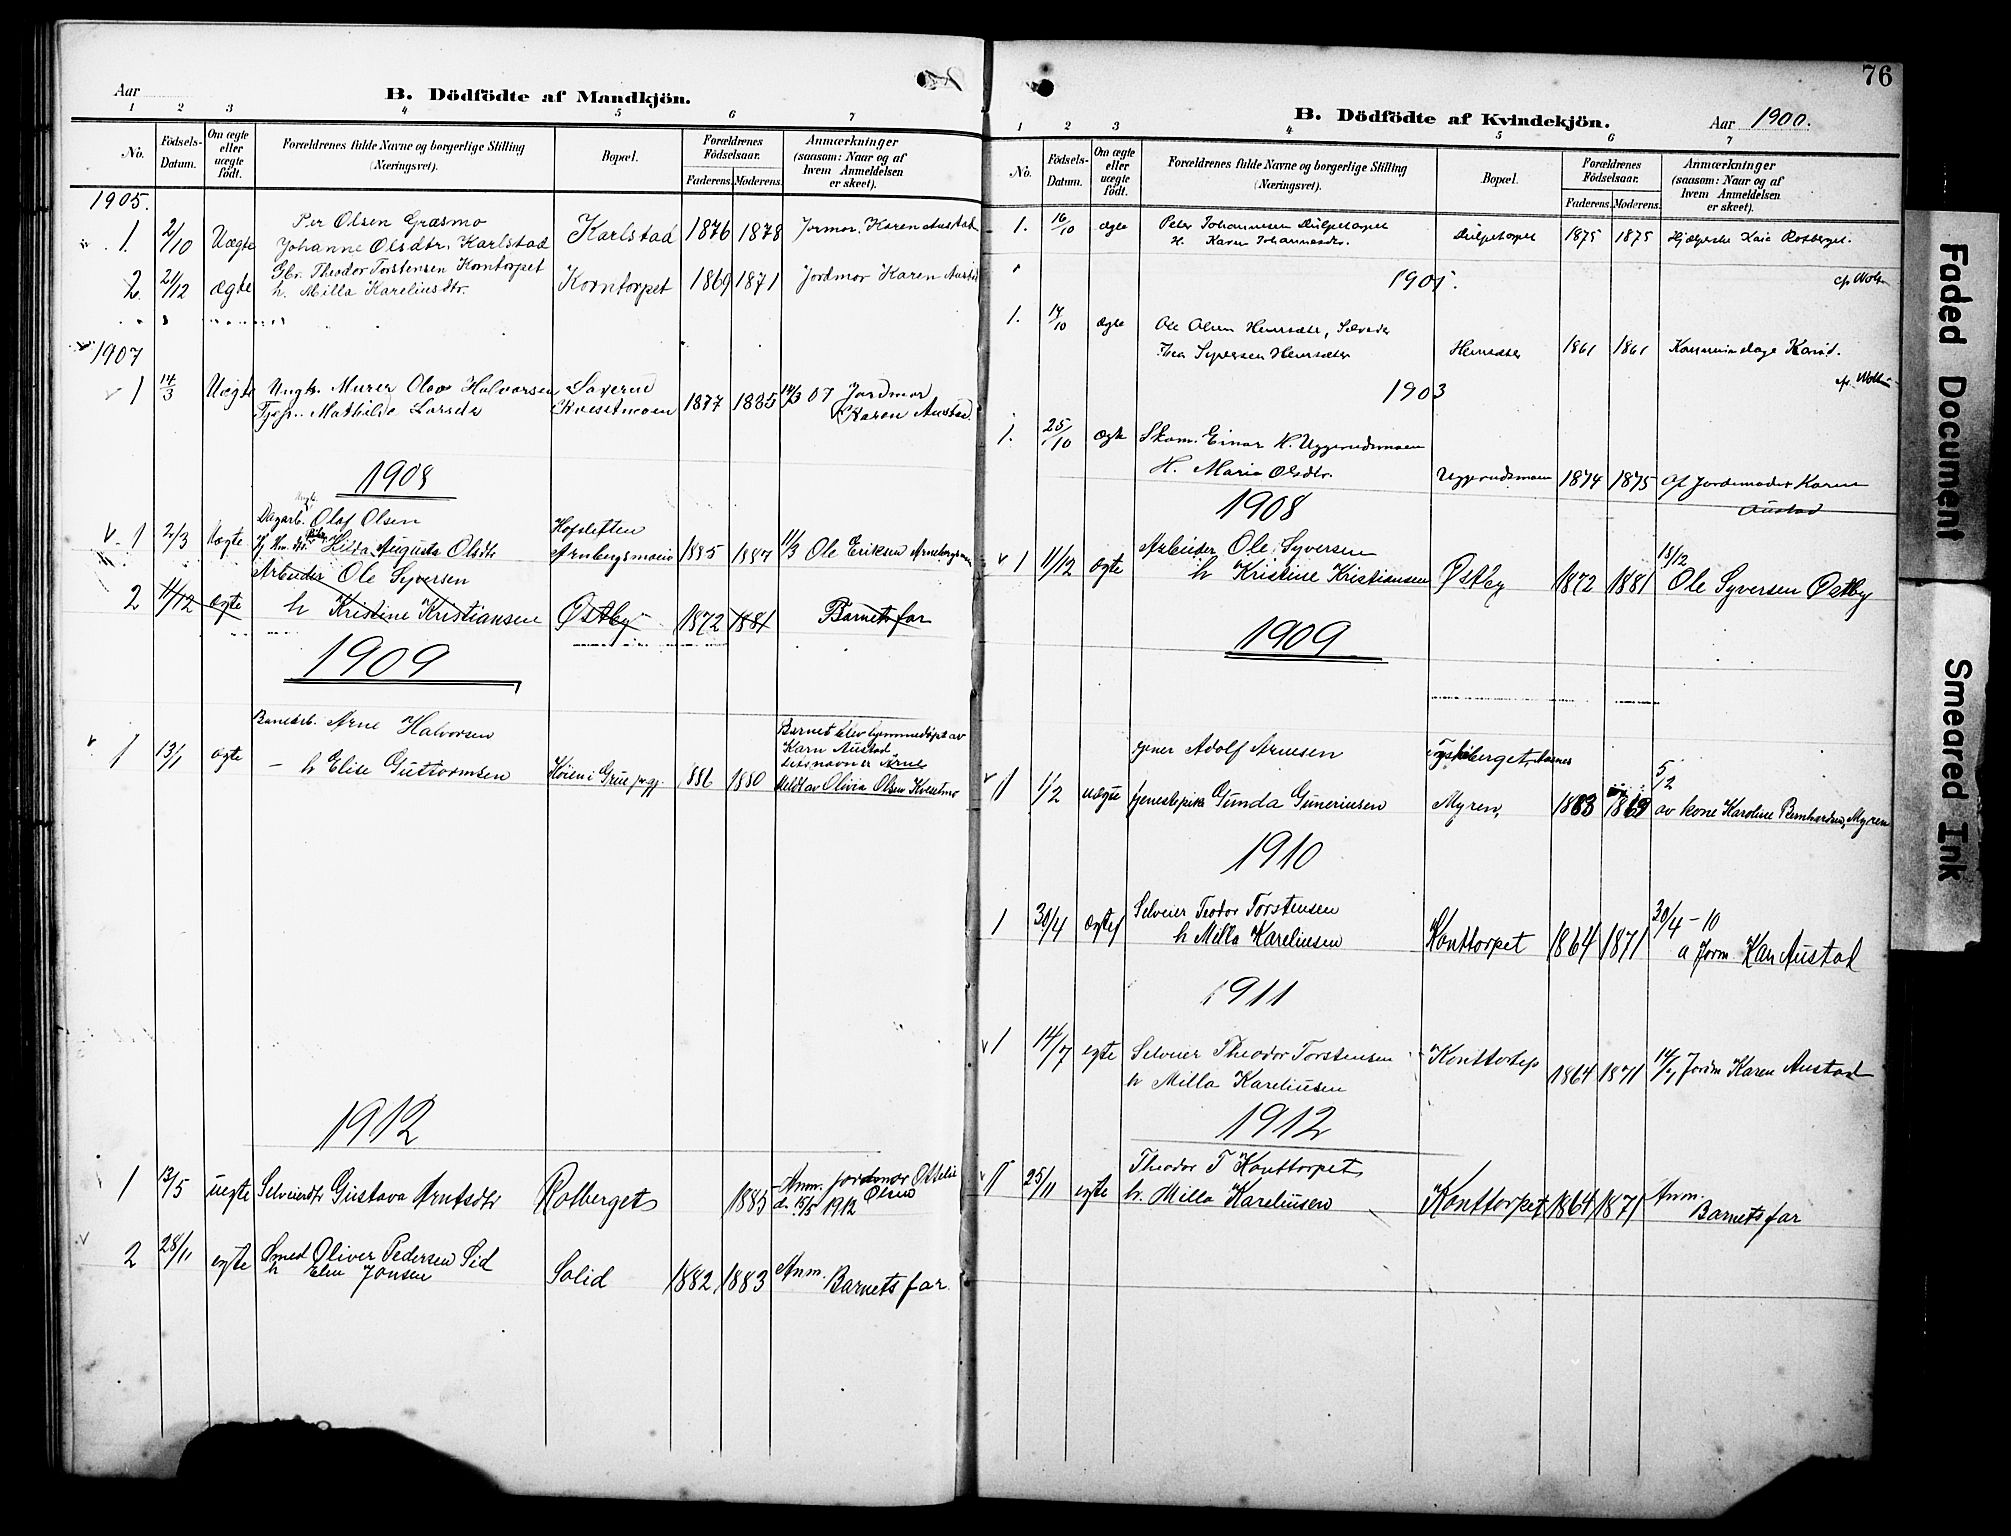 Aar
B. Dödfödte af Mandkjön.
1 2 3 4 5 6 7
No. Födsels-Datum. Om ægte eller uægte födt. Forældrenes fulde Navne og borgerlige Stilling (Næringsvei). Bopæl. Forældrenes Födselsaar. Faderens. Moderens. Anmærkninger (saasom: Naar og af hvem Anmeldelsen er skeet).
1905.
1. 2/10 Uægte Per Olsen Græsmo
Johanne Olsdtr. Karlstad Karlstad 1876 1878 Jormor. Karen Austad
2. 21/12 ægte Gbr. Theodor Torstensen Korntorpet
h. Milla Kareliusdtr. Korntorpet 1869 1871 Jordmor Karen Austad
1907
1 14/3 Uægte Ungk. Murer Olav Halvorsen
Mathilde Larsdtr 1877 1885 14/3 07 Jordmor
Karen Austad.
1908
1 2/3 Uægte Dagarb. Ungk. Olaf Olsen
Hilda Augusta Olsdtr Hofsletten
Arnbergsmoen 1885 1887 11/3 Ole Eriksen Arnebergsmoen
2 11/12 ægte Arbeider Ole Syversen
h Kristine Kristiansen Østby 1872 1881 Barnets far
1909
1 13/1 ægte Banearb. Arne Halvorsen
– h Elise Guttormsen Grue 1880 Barnet blev hjemmedøpt av
Karn Austad
navn er Arne
Meldt av Olivia Olsen
1912
1 13/5 uegte Selveierdtr Gustava Arntsdtr Rotberget 1885 Anm. jordmor Otelie Olsen
d. 15/5 1912
2 28/11 egte Smed Oliver Pedersen Lid
h Elen Jonsen Solid 1882 1883 Anm. Barnets far.
76
B. Dödfödte af Kvindekjön.
Aar 1900.
1 2 3 4 5 6 7
No. Födsels-Datum. Om ægte eller uægte födt. Forældrenes fulde Navne og borgerlige Stilling (Næringsvei). Bopæl. Forældrenes Födselsaar. Faderens. Moderens. Anmærkninger (saasom: Naar og af hvem Anmeldelsen er skeet).
1. 16/10 ægte Peter Johannesen
H. Karen Johannesdtr. 1875 1875 Rotberget.
1901.
1. 14/10 ægte Ole Olsen
Syversen 1861 1861
1903
1. 25/10 ægte Skom. Einar H. Uggerudsmoen
H. Maria Olsdtr. Uggerudsmoen 1874 1875 Af Jordemoder Karen
Austad
1908
1 11/12 ægte Arbeider Ole Syversen
h Kristine Kristiansen Østby 1872 1881 18/12
Ole Syversen Østby
1909
1 1/2 uægte Adolf Arnesen
Gunda Guneriusen Myren, 1883 5/2
av kone Karoline Bernhardsen, Myren
1910
1 30/4 ægte Selveier Teodor Torstensen
h Milla Kareliusen Konttorpet 1864 1871 30/4 – 10
a Jorm. Karn Austad
1911
1 14/7 egte Selveier Theodor Torstensen
h Milla Kareliusen Konttorp 1864 1871 14/7 Jordm Karen Austad
1912
1 25/11 egte Theodor T Konttorpet
h. Milla Kareliusen Konttorpet 1864 1871 Anm.
Barnets far
Faded Document
Smeared Ink